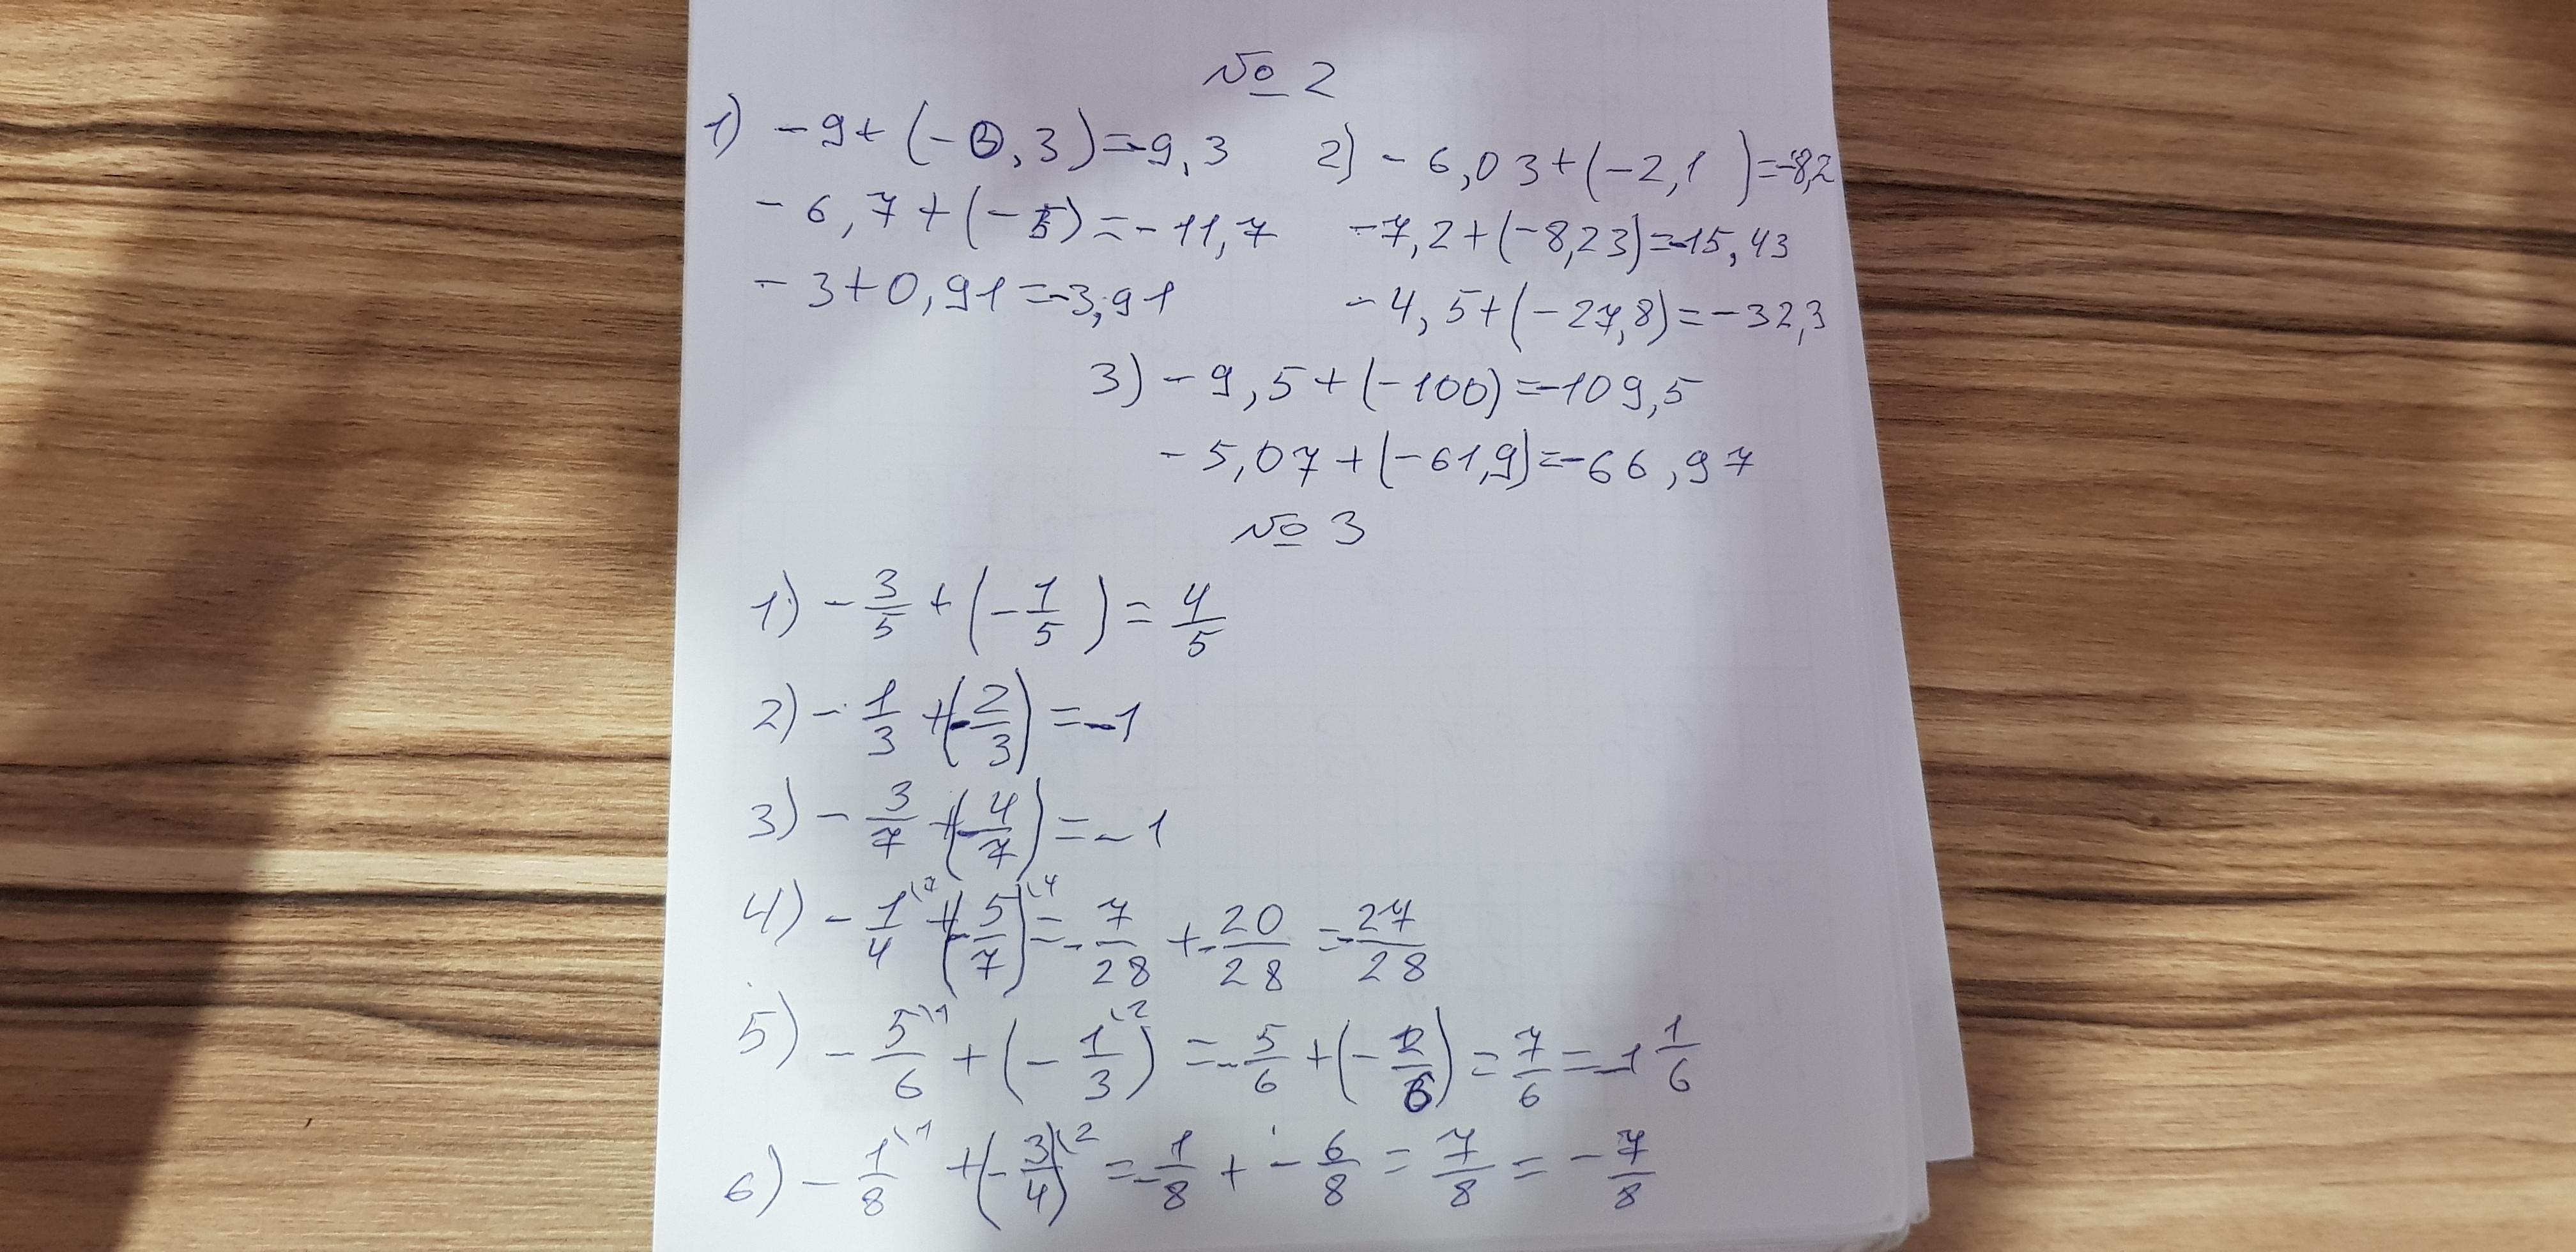 № 2
1) -9+(-0,3)=-9,3 2) -6,03+(-2,1)=-8,2
-6,7+(-5)=-11,7 -7,2+(-8,23)=-15,43
-3+0,91=-3,91 -4,5+(-27,8)=-32,3
3) -9,5+(-100)=-109,5
-5,07+(-61,9)=-66,97
№ 3
1) -3/5+(-1/5)=4/5
2) -1/3+(-2/3)=-1
3) -3/7+(-4/7)=-1
4) -1/4\7+(-5/7)\4=-7/28+-20/28=-27/28
5) -5/6\1+(-1/3\2)=-5/6+(-2/6)=7/6=-1 1/6
6) -1/8\1+(-3/4)\2=-1/8+-6/8=7/8=-7/8